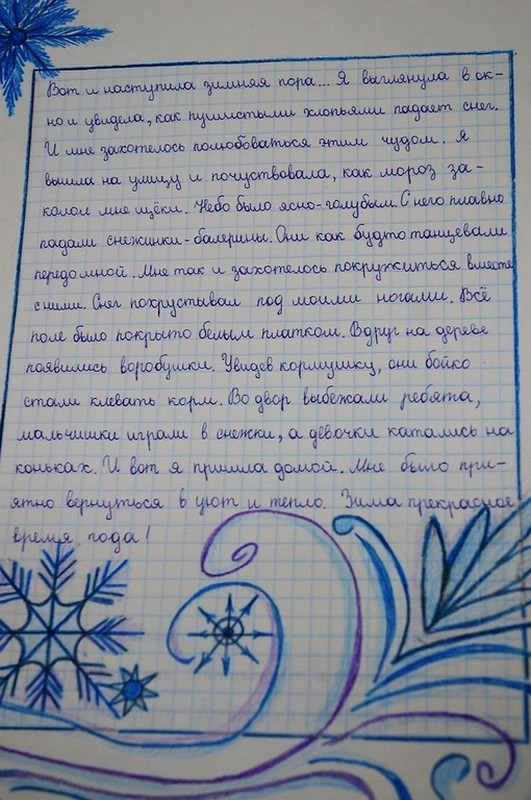 Вот и наступила зимняя пора... Я выглянула в ок-
но и увидела, как пушистыми хлопьями падает снег.
И мне захотелось полюбоваться этим чудом. Я
вышла на улицу и почуствовала, как мороз за-
колол мне щёки. Небо было ясно-голубым. С него плавно
падали снежинки-балерины. Они как будто танцевали
передо мной. Мне так и захотелось покружиться вместе
с ними. Снег похрустывал под моими ногами. Всё
поле было покрыто белым платком. Вдруг на дереве
появились воробушки. Увидев кормушку, они бойко
стали клевать корм. Во двор выбежали ребята,
мальчишки играли в снежки, а девочки катались на
коньках. И вот я пришла домой. Мне было при-
ятно вернуться в уют и тепло. Зима прекрасное
время года!